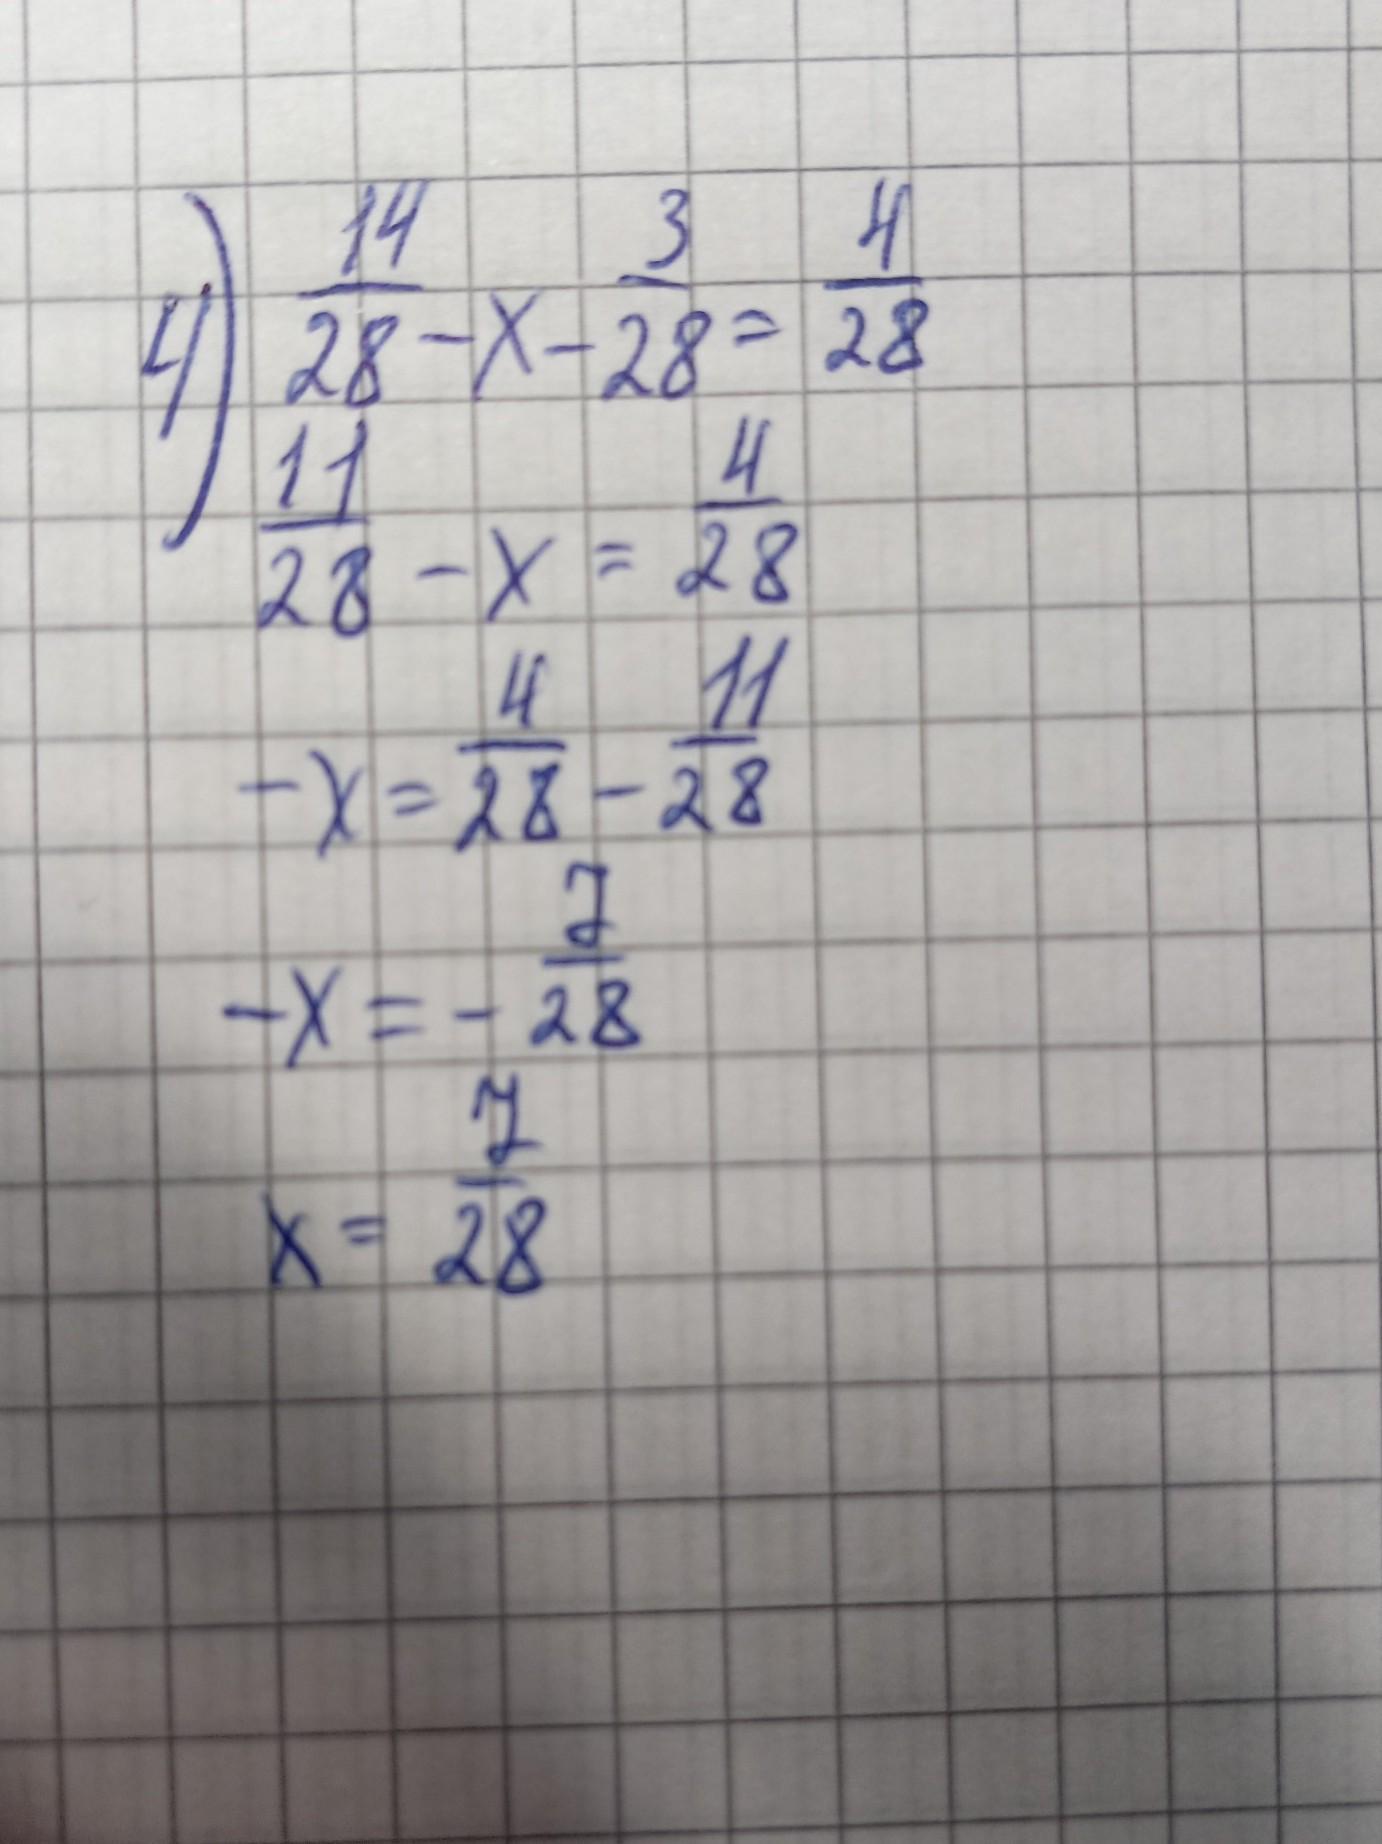 4) 14/28 - x - 3/28 = 4/28
11/28 - x = 4/28
-x = 4/28 - 11/28
-x = - 7/28
x = 7/28